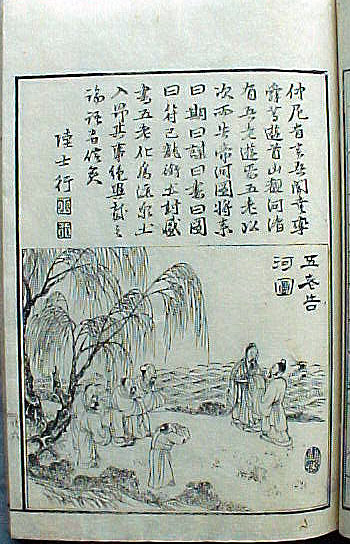 仲尼有言吾聞堯率
舜等遊首山觀河渚
有五老遊焉五老以
次而告帝河圖將來
曰期曰謀曰書曰圖
曰符已龍銜玉封盛
書五老化為流星上
入昴其事絕
論語者信矣
陸士行
五老告
河圖